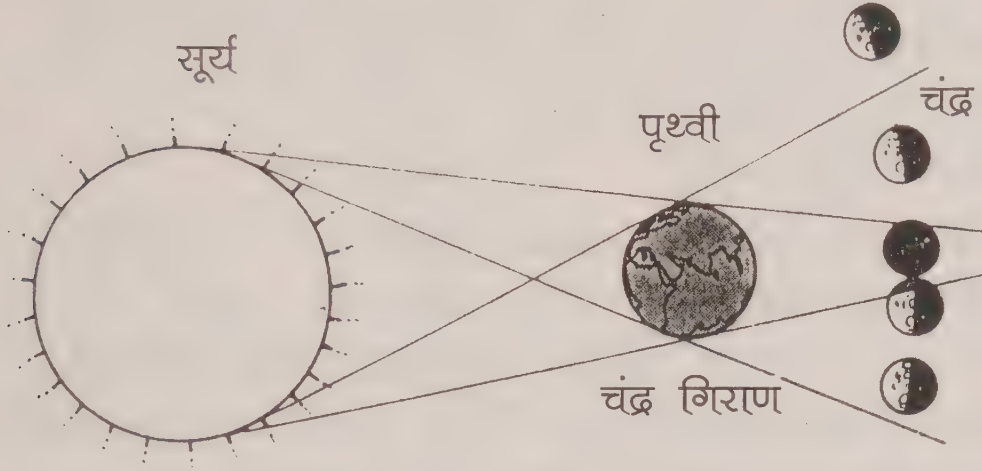 सूर्य
पृथ्वी
चंद्र
चंद्र गिराण